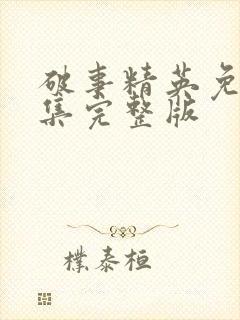 破事精英免
集完整版
朴泰桓